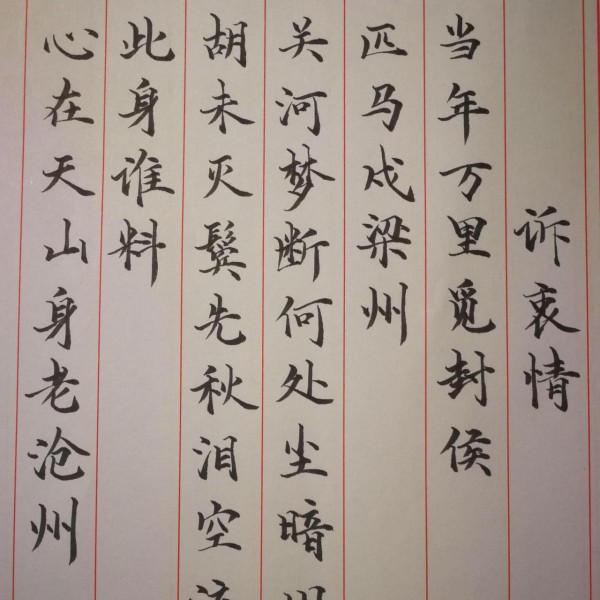 诉衷情
当年万里觅封侯
匹马戍梁州
关河梦断何处尘暗
胡未灭鬓先秋泪空
此身谁料
心在天山身老沧州